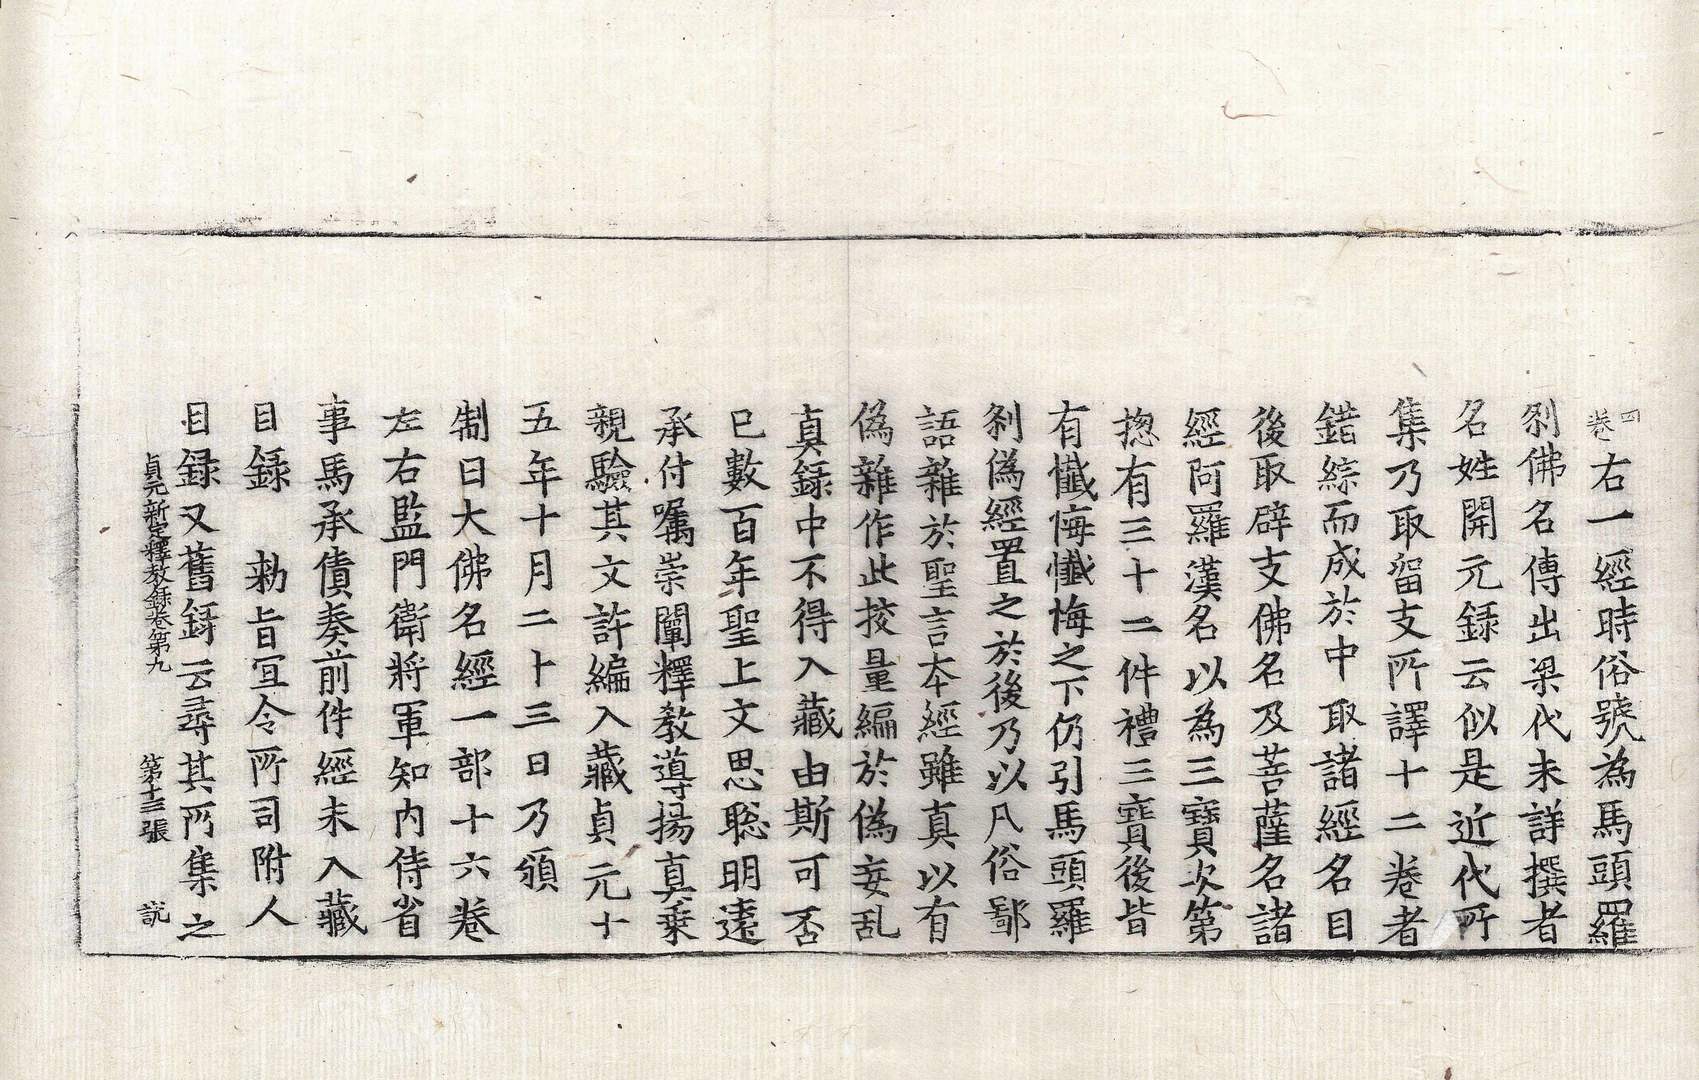 四卷
右一經時俗號為馬頭羅
刹佛名傳出梁代未詳撰者
名姓開元録云似是近代所
集乃取留支所譯十二卷者
錯綜而成於中取諸經名目
後取辟支佛名及菩薩名諸
經阿羅漢名以為三寶次第
揔有三十二件禮三寶後皆
有懺悔懺悔之下仍引馬頭羅
刹偽經置之於後乃以凡俗鄙
語雜於聖言本經雖真以有
偽雜作此挍量編於偽妄乱
真録中不得入藏由斯可否
已數百年聖上文思聡明遠
承付囑崇闡釋教導揚真乗
親驗其文許編入藏貞元十
五年十月二十三日乃頒
制日大佛名經一部十六卷
左右監門衛將軍知内侍省
事馬承債奏前件經未入藏
目録 勑旨宜令所司附入
目録又舊録云尋其所集之
貞元新定釋教錄卷第九 第十三張 說